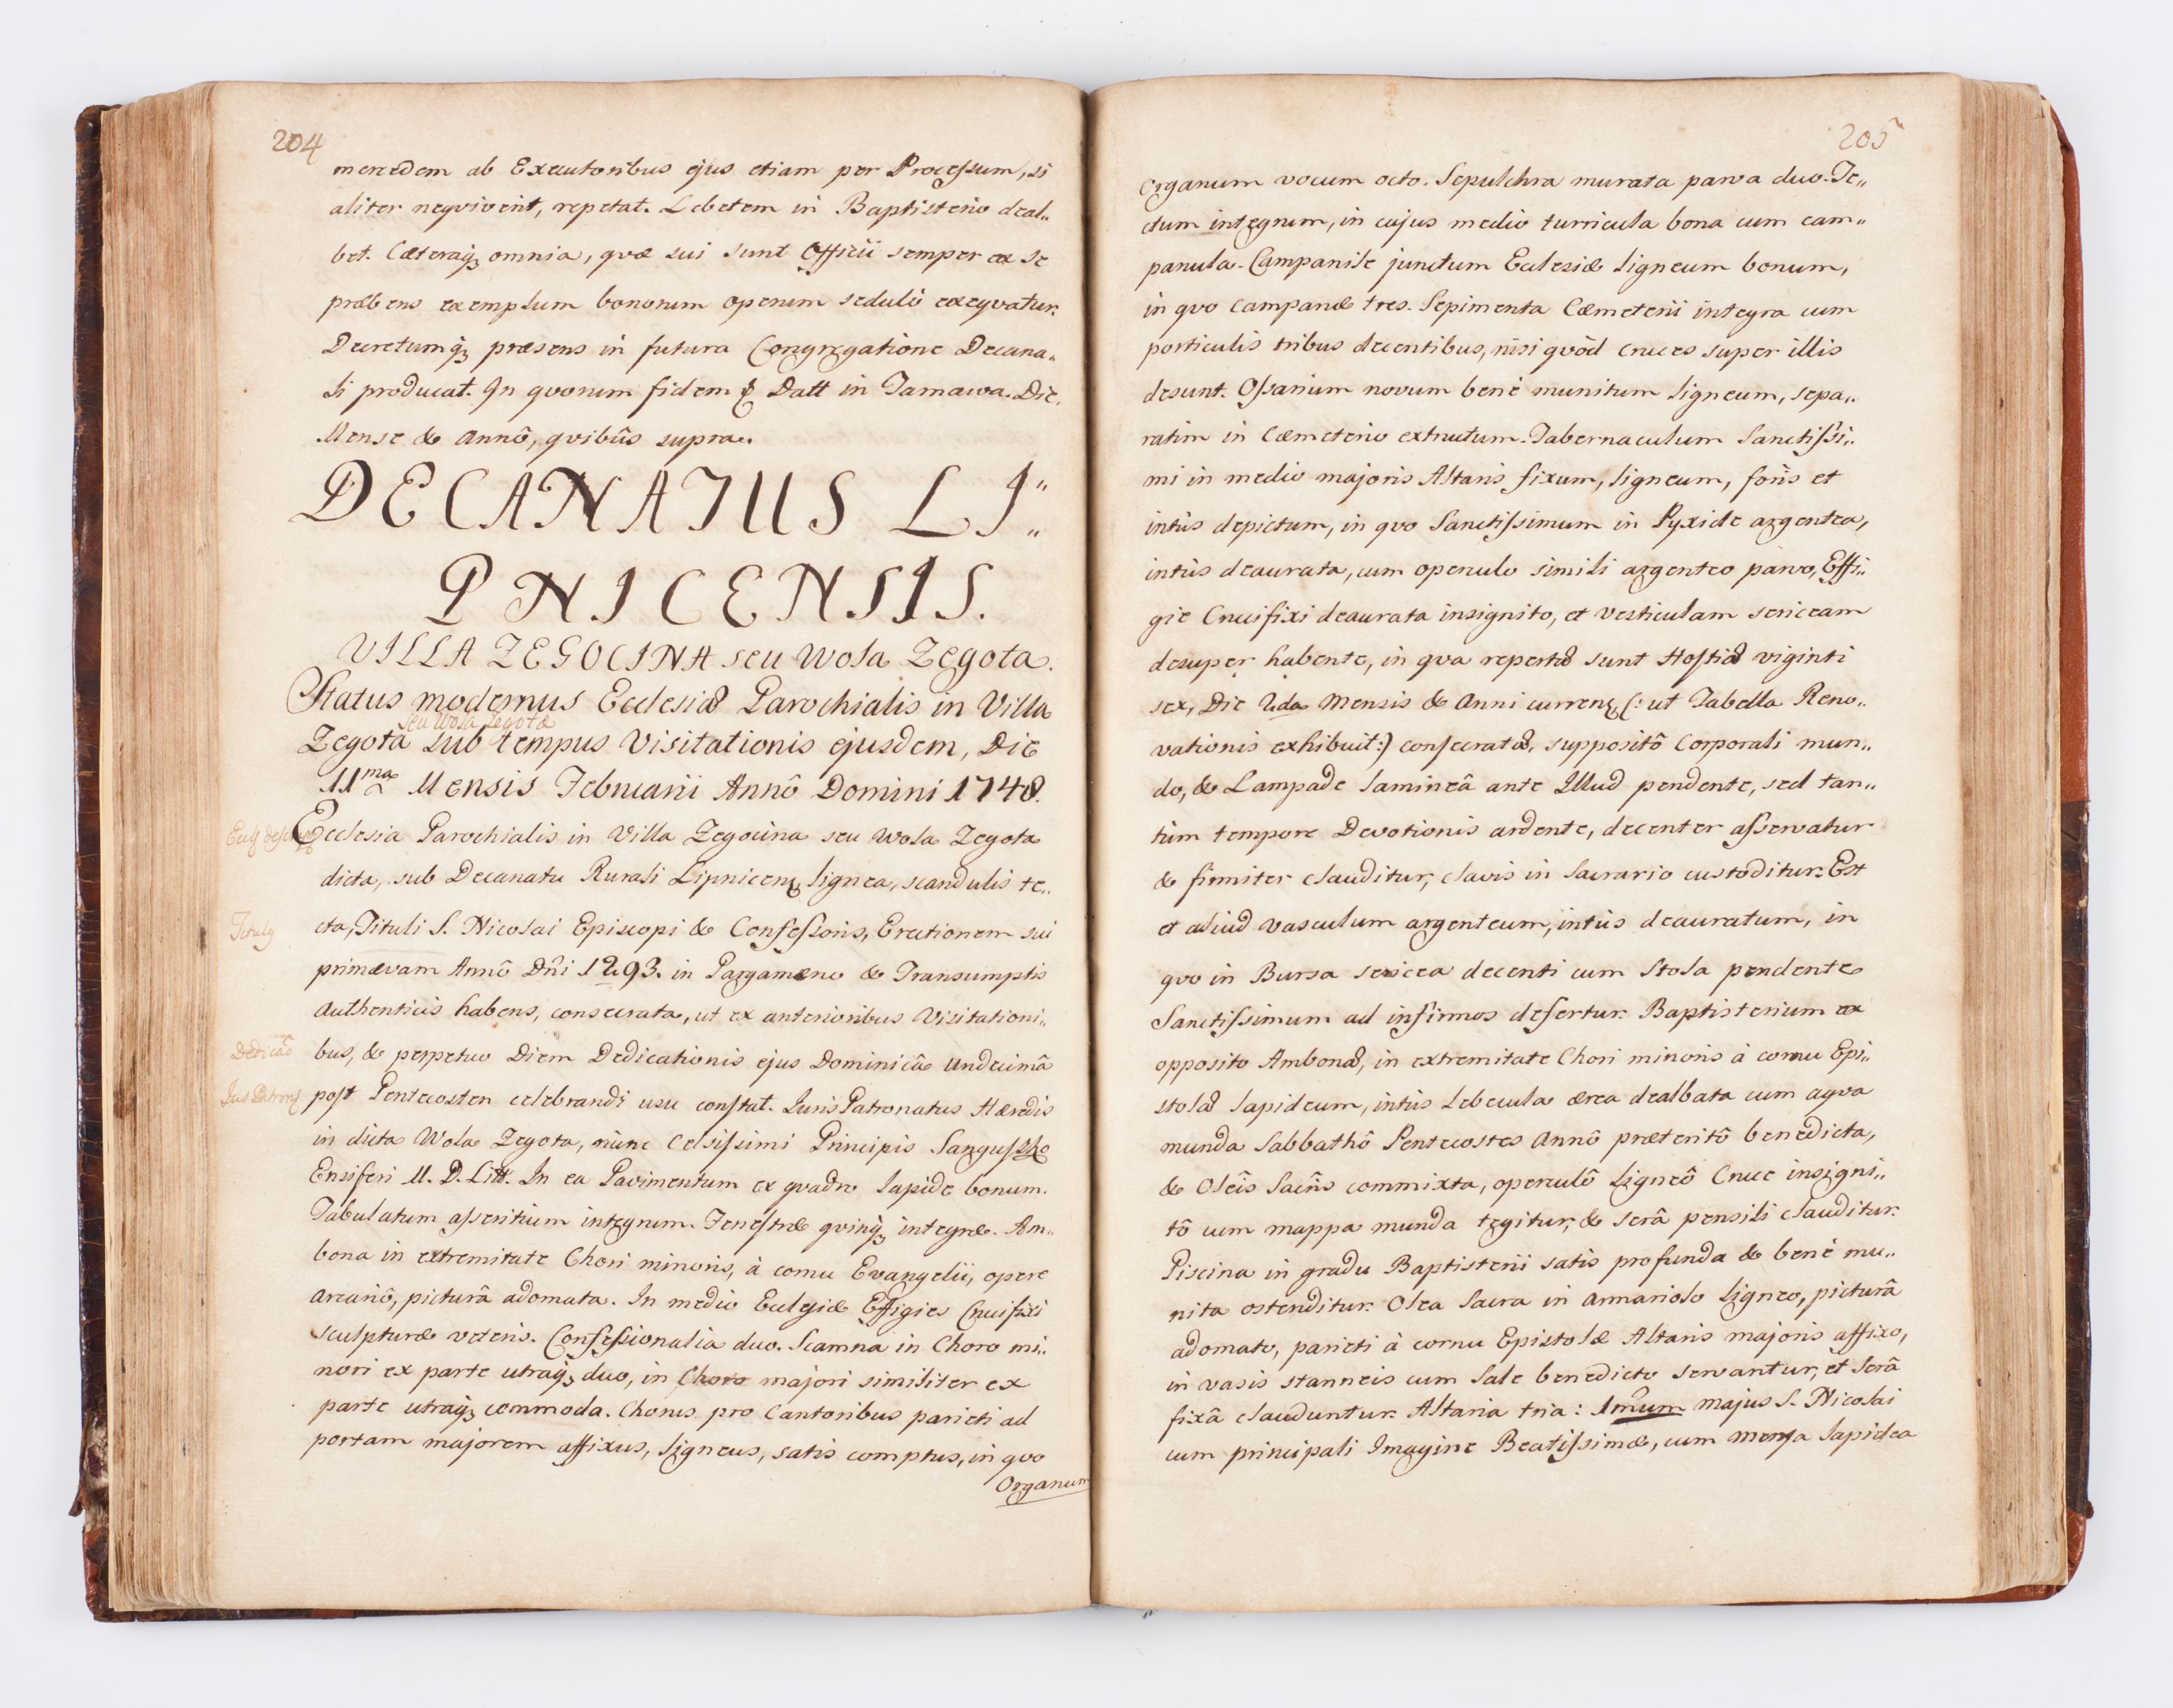 204
mercedem ab Executoribus ejus etiam per Processum, si
aliter neqviverit, repetat. Lebetem in Baptisterio deal„
bet. Cæteraq3 omnia, qvæ sui sunt Officii semper ex se
præbens exemplum bonorum operum sedulò exeqvatur.
Decretumq3 præsens in futura Congregatione Decana„
li producat. In qvorum fidem & Datt in Tarnawa. Die,
Mense & Annô, qvibûs supra.
DECANATUS LI„
PNICENSIS.
VILLA ZEGOCINA seu Wola Zegota.
Status modernus Ecclesiæ Parochialis in Villa
seu Wola Zegota
Zegota sub tempus Visitationis ejusdem, Die
11ma Mensis Februarii Annô Domini 1748.
Ecclesia Parochialis in Villa Zegocina seu Wola Zegota
dicta, sub Decanatu Rurali Lipnicen, lignea, scandulis te„
Tituly
cta, Tituli S. Nicolai Episcopi & Confessoris, Erectionem sui
primævam Annô Dni 1293. in Pargameno & Transumptis
Authenticis habens, consecrata, ut ex anterioribus Visitationi„
Dedicaõ
bus, & perpetuo Diem Dedicationis ejus Dominicâ Undecimâ
Jus Patrong
post Pentecosten celebrandi usu constat. Juris Patronatus Hæredis
in dicta Wola Zegota, nunc Celsissimi Principis Sangussko
Ensiferi M. D. Litt. In ea Pavimentum ex qvadro lapide bonum.
Tabulatum asseritium integrum. Fenestræ qvinq3 integræ. Am„
bona in extremitate Chori minoris, à cornu Evangelii, opere
arcariô, picturâ adornata. In medio Ecclesiæ Effigies Crucifixi
sculpturæ veteris. Confessionalia duo. Scamna in Choro mi„
nori ex parte utraq3 duo, in Choro majori similiter ex
parte utraq3 commoda. Chorus pro Cantoribus parieti ad
portam majorem affixus, ligneus, satis comptus, in qvo
Organum
205
Organum vocum octo. Sepulchra murata parva duo. Te„
ctum integrum, in cujus medio turricula bona cum cam„
panula. Campanile junctum Ecclesiæ ligneum bonum,
in qvo Campanæ tres. Sepimenta Cæmeterii integra cum
porticulis tribus decentibus, nisi qvòd cruces super illis
desunt. Ossarium novum benè munitum ligneum, sepa„
ratim in Cæmeterio extructum. Tabernaculum Sanctissi„
mi in medio majoris Altaris fixum, ligneum, foris et
intùs depictum, in qvo Sanctissimum in Pyxide argentea,
intùs deaurata, cum operculo simili argenteo parvo, Effi„
gie Crucifixi deaurata insignito, et vesticulam sericeam
desuper habente, in qva repertæ sunt Hostiæ viginti
sex, Die 2da Mensis & Anni curren (: ut Tabella Reno„
vationis exhibuit:) consecratæ, suppositô Corporali mun„
do, & Lampade lamineâ ante Illud pendente, sed tan„
tùm tempore Devotionis ardente, decenter asservatur
& firmiter clauditur, clavis in Sacrario custoditur. Est
et aliud vasculum argenteum, intùs deauratum, in
qvo in Bursa sericea decenti cum Stola pendente
Sanctissimum ad infirmos defertur. Baptisterium ex
opposito Ambonæ, in extremitate Chori minoris à cornu Epi„
stolæ lapideum, intùs Lebecula ærea dealbata cum aqva
munda Sabbathô Pentecostes Annô præteritô benedicta,
& Oleis Sacris commixta, operculô Ligneô Cruce insigni„
tô cum mappa munda tegitur, & serâ pensili clauditur.
Piscina in gradu Baptisterii satis profunda & benè mu„
nita ostenditur. Olea Sacra in armariolo Ligneo, picturâ
adornato, parieti à cornu Epistolæ Altaris majoris affixo,
in vasis stanneis cum Sale benedicto servantur, et Serâ
fixâ clauduntur. Altaria tria: 1mum majus S. Nicolai
cum principali Imagine Beatissimæ, cum mensa lapidea